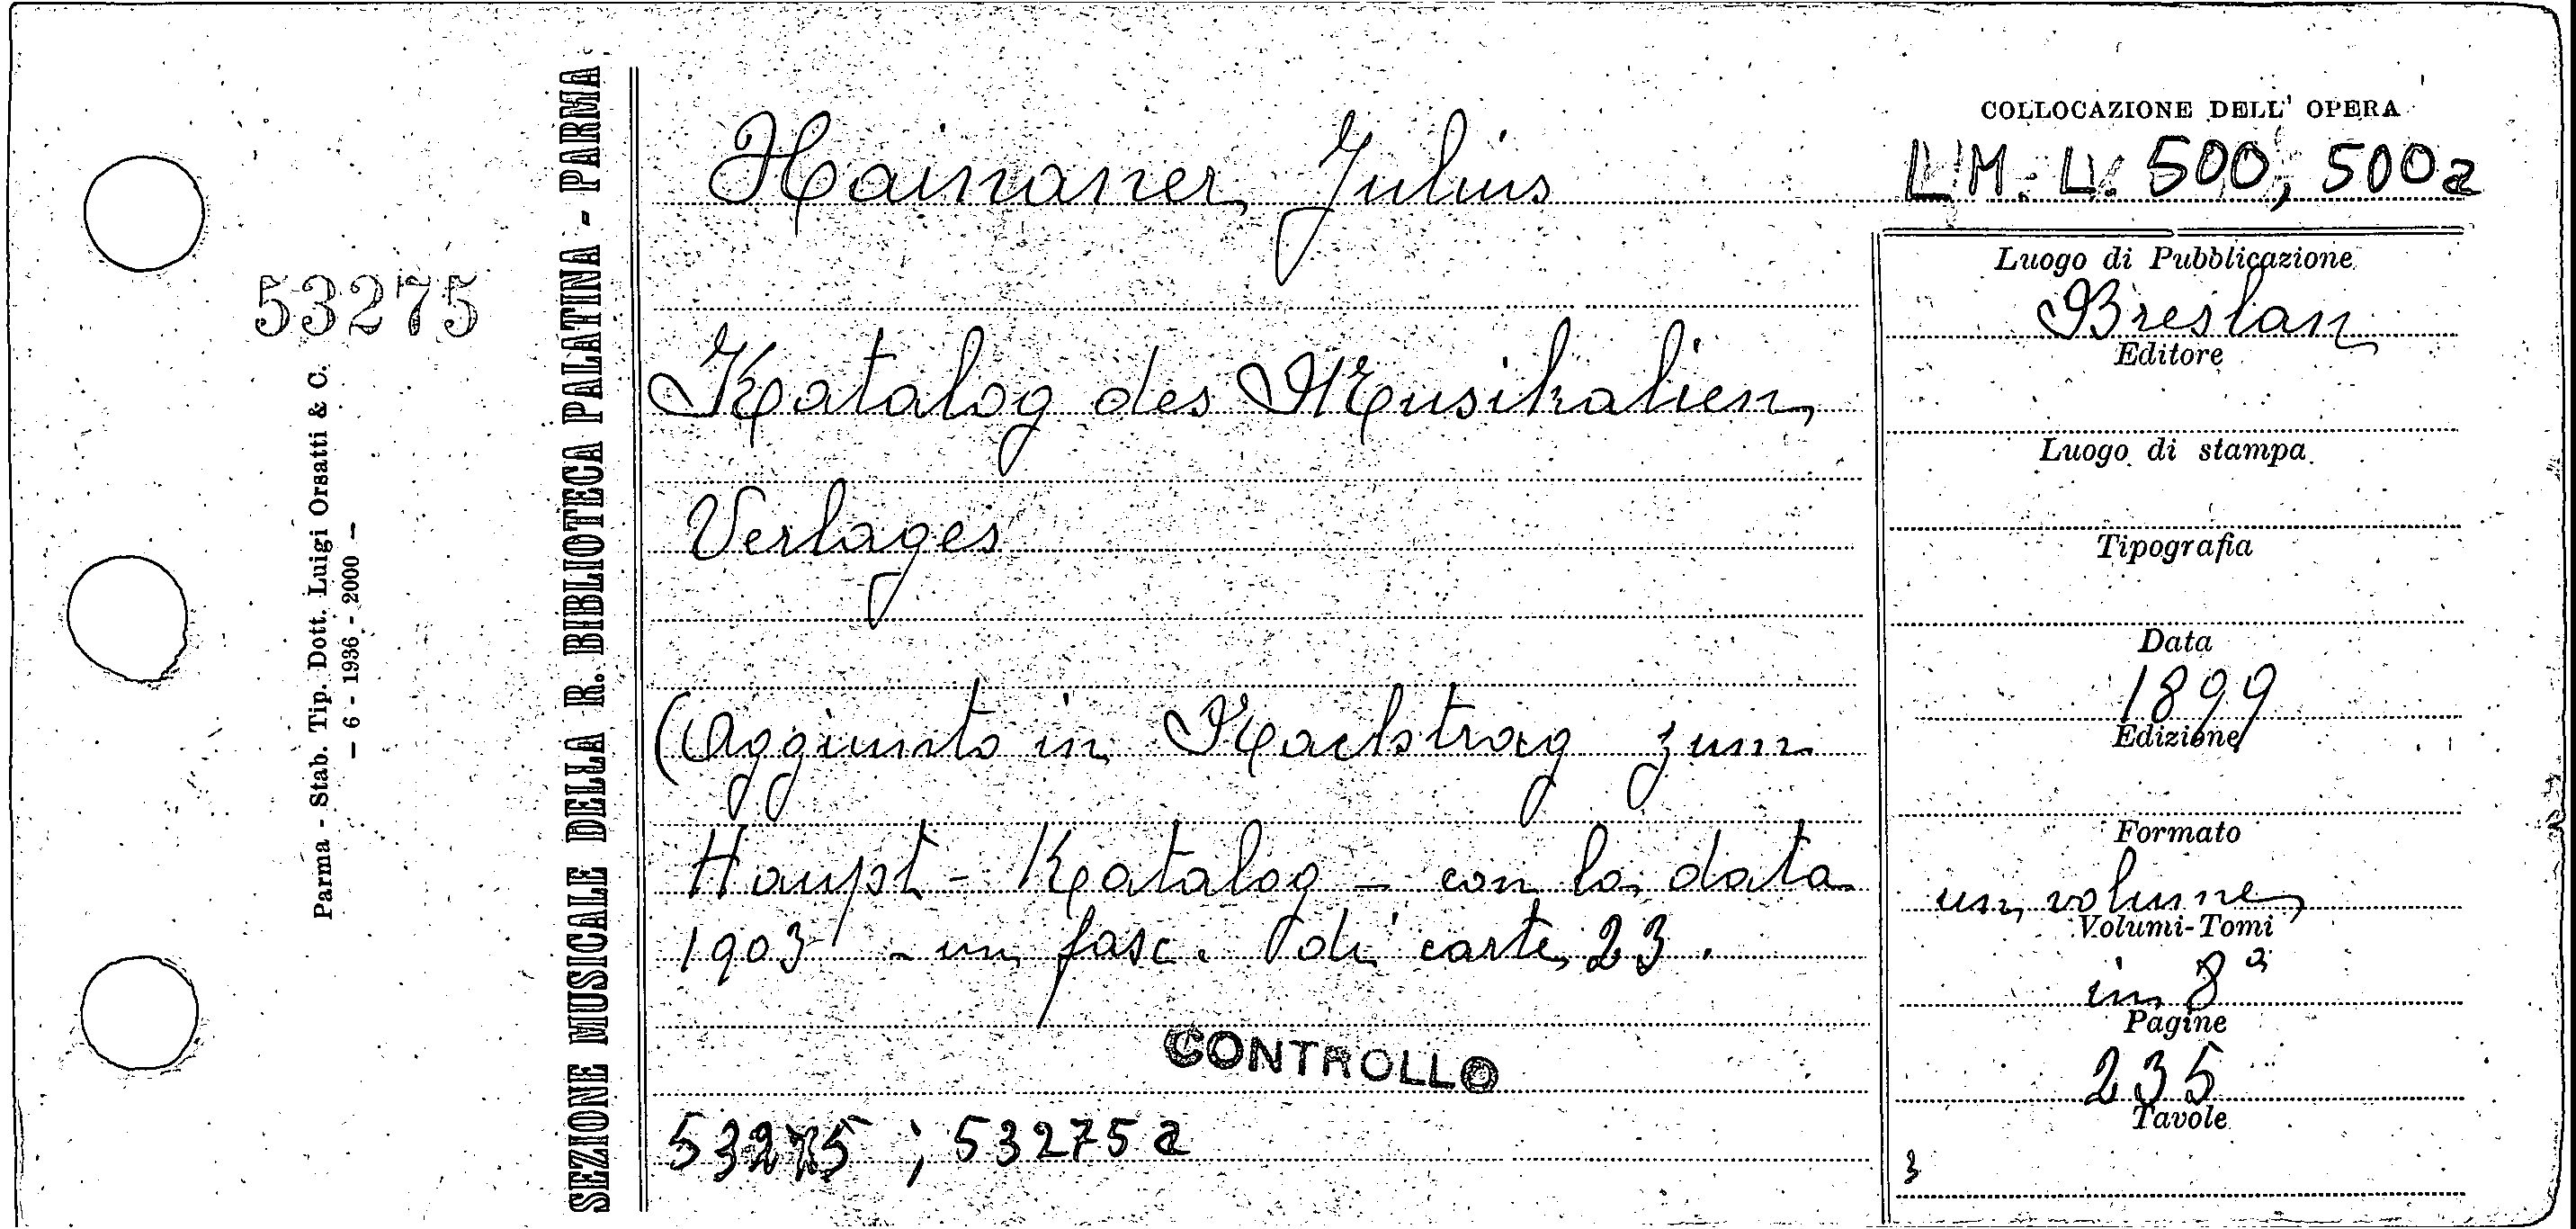 COLLOCAZIONE DELL' OPERA
Hainauer, Julius
L. M. L. 500, 500a
53275
Parma - Stab. Tip. Dott. Luigi Orsatti & C.
– 6 - 1936 - 2000 –
SEZIONE MUSICALE DELLA R. BIBLIOTECA PALATINA - PARMA
Katalog des Musikalien,
Verlages
(Aggiunto in Nachtrag zum
Haupt - Katalog - con la data
1903 - un fasc. di carte 23.
CONTROLLO
53275 ; 53275 a
Luogo di Pubblicazione
Breslau
Editore
Luogo di stampa
Tipografia
Data
1899
Edizione
Formato
un volume
Volumi-Tomi
in 8°
Pagine
235
Tavole
3